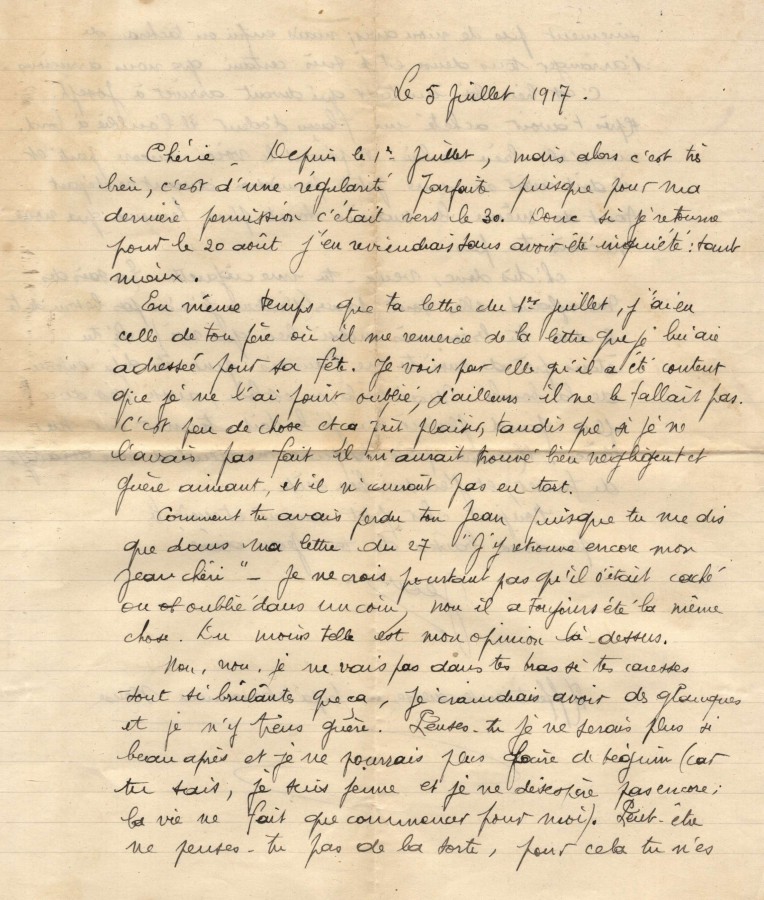 Le 5 Juillet 1917.
Chérie _ Depuis le 1er Juillet, mais alors c'est très
bien, c'est d'une régularité parfaite puisque pour ma
dernière permission c'était vers le 30. Donc si je retourne
pour le 20 août j'en reviendrais sans avoir été inquiété : tant
mieux.
En même temps que ta lettre du 1er juillet, j'ai eu
celle de ton père où il me remercie de la lettre que je lui ai
adressée pour sa fête. Je vois par elle qu'il a été content
que je ne l'ai point oublié, d'ailleurs il ne le fallait pas.
C'est peu de chose et ça fait plaisir, tandis que si je ne
l'avais pas fait il m'aurait trouvé bien négligent et
guère aimant, et il n'aurait pas eu tort.
Comment tu avais perdu ton Jean puisque tu me dis
que dans ma lettre du 27 "J'y retrouve encore mon
Jean chéri" _ Je ne crois pourtant pas qu'il s'était caché
ou oublié dans un coin, non il a toujours été la même
chose. Du moins telle est mon opinion là-dessus.
Non, non, je ne vais pas dans tes bras si tes caresses
sont si brûlantes que ça, je craindrais avoir des
et je n'y tiens guère. Penses-tu je ne serais plus si
beau après et je ne pourrais plus faire de béguin (car
tu sais, je suis jeune et je ne désespère pas encore;
la vie ne fait que commencer pour moi). Peut-être
ne penses-tu pas de la sorte, pour cela tu n'es